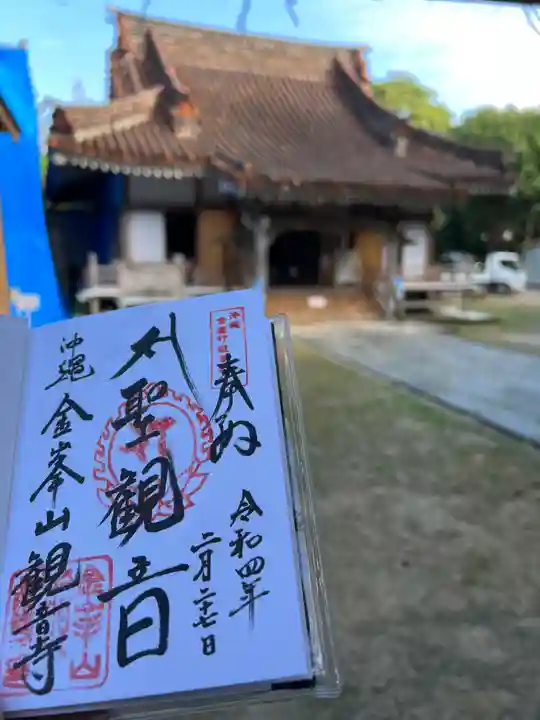 奉拝
令和四年
二月二十七日
聖観音
沖縄 金峯山 観音寺